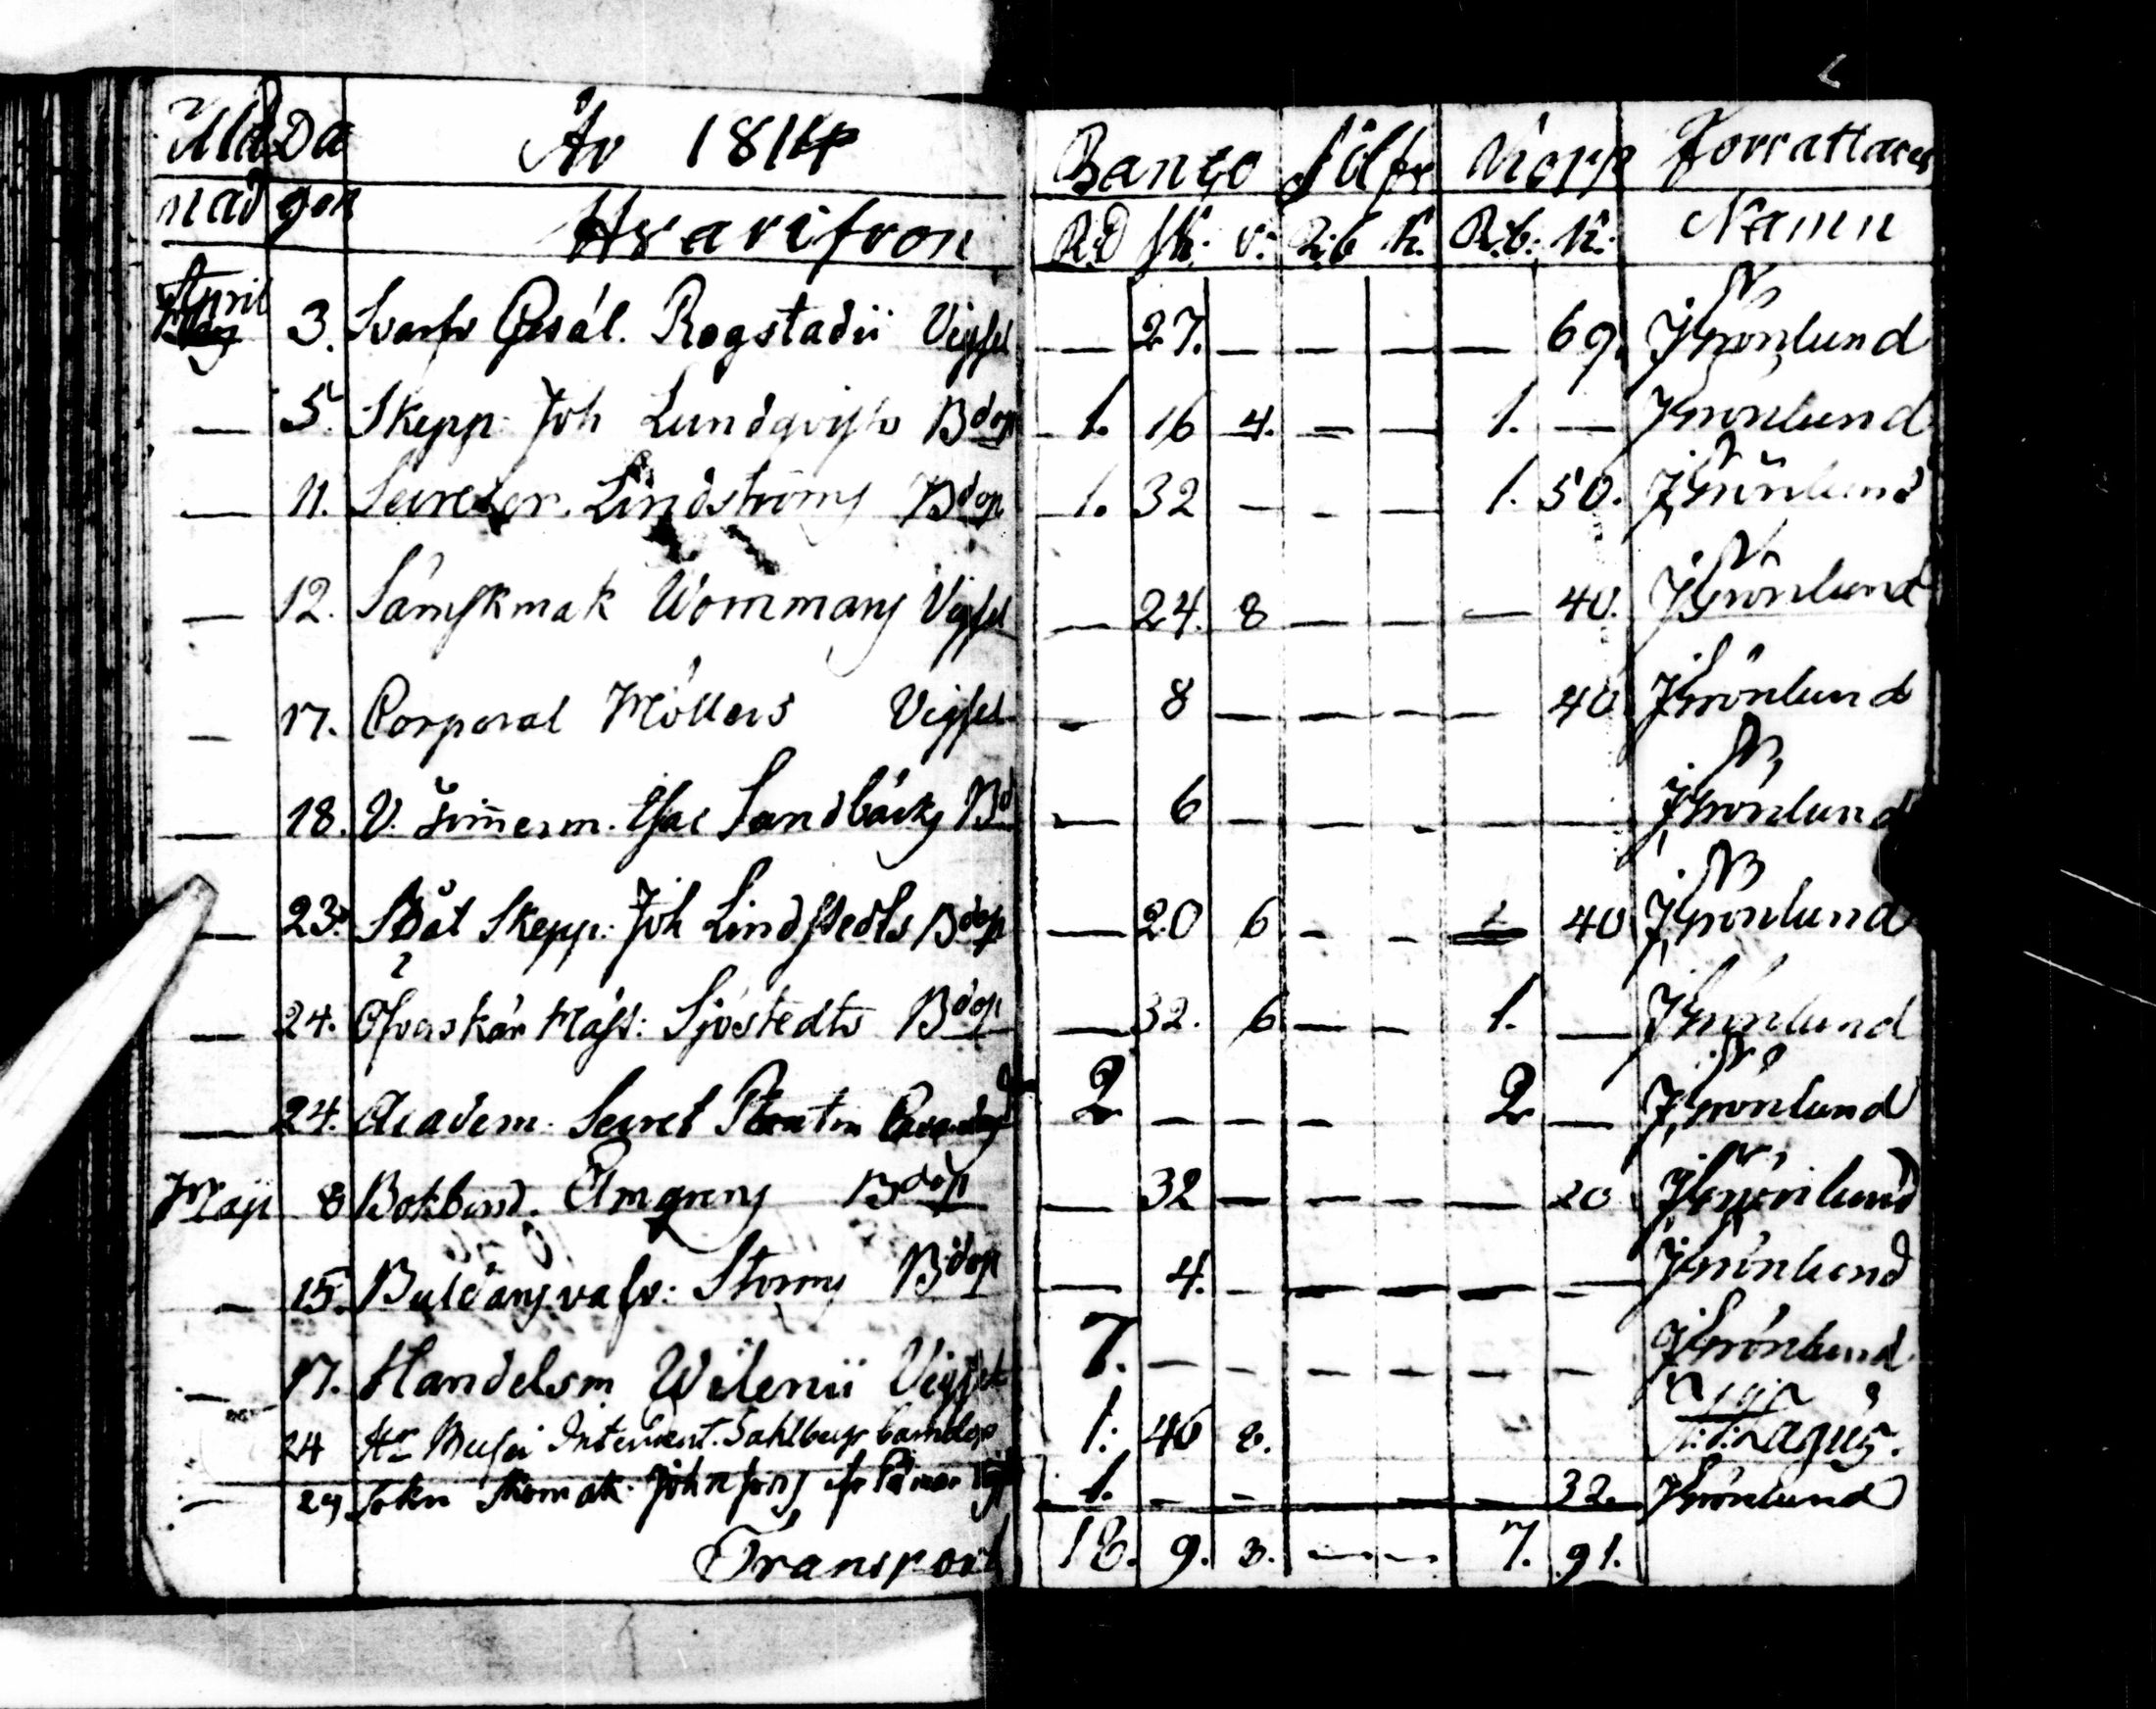 Må Da År 1814 Banco Silfr Kopp Forrattares
nad gen Hvarifron RD sk. r. R:b k. R:b: k: Namn
April 3. Svarfv Gesäl. Rogstadii Vigsel — 27. — — — — 69. J Grönlund
— 5. Skepp. Joh Lundqvists Bdop 1. 16 4. — — 1. — J Grönlund
— 11. Secreter. Lindströms Bdop 1. 32 — — — 1. 50. J Grönlund
— 12. Sämskmak Wommans Vigsel — 24. 8 — — — 40. J Grönlund
— 17. Corporal Möllers Vigsel — 8 — — — — 40 J Grönlund
— 18. V. Timerm. Isac Sandbäcks Bd — 6 — — — — — J Grönlund
— 23. Båt Skepp: Joh Lindstedts Bdop — 20 6 — — — 40 J Grönlund
— 24. Öfverskär Mäst: Sjöstedts Bdop — 32. 6 — — 1. — J Grönlund
— 24. Academ. Secret 2 — — — 2 — J Grönlund
Maji 8 Bokbind. Almgrens Bdop — 32 — — — — 20 J Grönlund
— 15. Buldansväfv: Storms Bdop — 4. — — — — — J Grönlund
— 17. Handelsm Wilenii Vigsel 7. — — — — — — J Grönlund
24 Hr Musei Intendent. Sahlbergs barndop 1: 46 8. Lagus.
— 29 Sokn Skomak. Johnsons 1. — — — 32. J Grönlund
Transport 18. 9. 8. — — 7. 91.